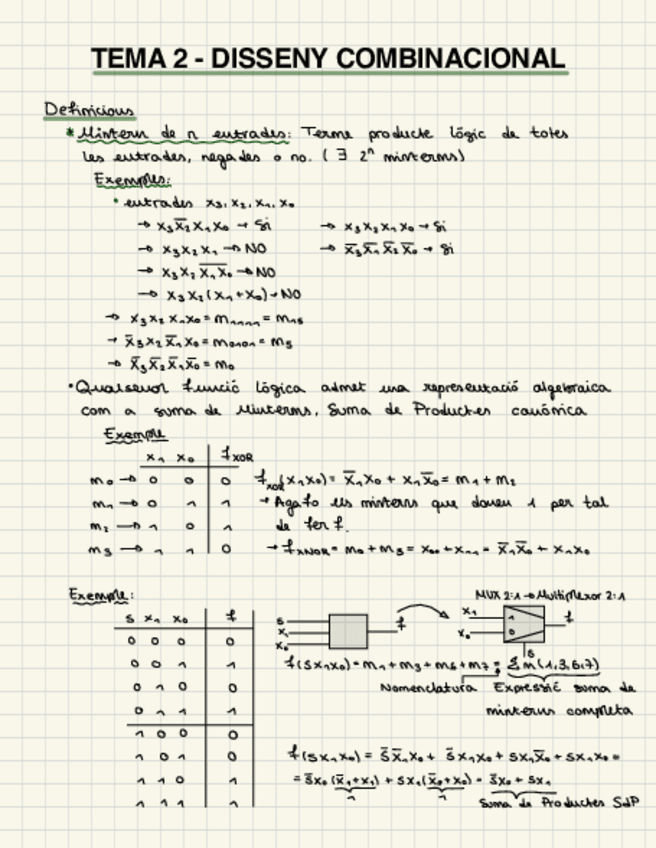 TEMA 2 - DISSENY COMBINACIONAL
Definicions
* Minterm de n entrades: Terme producte lògic de totes
les entrades, negades o no. (∃ 2ⁿ minterms)
Exemples:
• entrades x₃, x₂, x₁, x₀
→ x₃x̅₂x₁x₀ → Si → x₃x₂x₁x₀ → Si
→ x₃x₂x₁ → NO → x̅₃x̅₁x̅₂x̅₀ → Si
→ x₃x₂x̅₁x̅₀ → NO
→ x₃x₂(x₁+x₀) → NO
→ x₃x₂x₁x₀ = m₁₁₁₁ = m₁₅
→ x̅₃x₂x̅₁x₀ = m₀₁₀₁ = m₅
→ x̅₃x̅₂x̅₁x̅₀ = m₀
• Qualsevol funció lògica admet una representació algebraica
com a suma de Minterms, Suma de Productes canònica
Exemple
x₁ x₀ f XOR
m₀ → 0 0 0 f XOR (x₁x₀) = x̅₁x₀ + x₁x̅₀ = m₁ + m₂
m₁ → 0 1 1 → Agafo els minterms que donen 1 per tal
m₂ → 1 0 1 de fer f.
m₃ → 1 1 0 → f XNOR = m₀ + m₃ = x₀₀ + x₁₁ = x̅₁x̅₀ + x₁x₀
Exemple:
MUX 2:1 → Multiplexor 2:1
s x₁ x₀ f
0 0 0 0
0 0 1 1
0 1 0 0
0 1 1 1
1 0 0 0
1 0 1 0
1 1 0 1
1 1 1 1
s
x₁
x₀
f
x₁ 1
x₀ 0
f
s
f(sx₁x₀) = m₁ + m₃ + m₆ + m₇ = Σm(1,3,6,7)
Nomenclatura Expressió suma de
minterms completa
f(sx₁x₀) = s̅x̅₁x₀ + s̅x₁x₀ + sx₁x̅₀ + sx₁x₀ =
= s̅x₀(x̅₁+x₁) + sx₁(x̅₀+x₀) = s̅x₀ + sx₁
1 1 Suma de Productes SdP